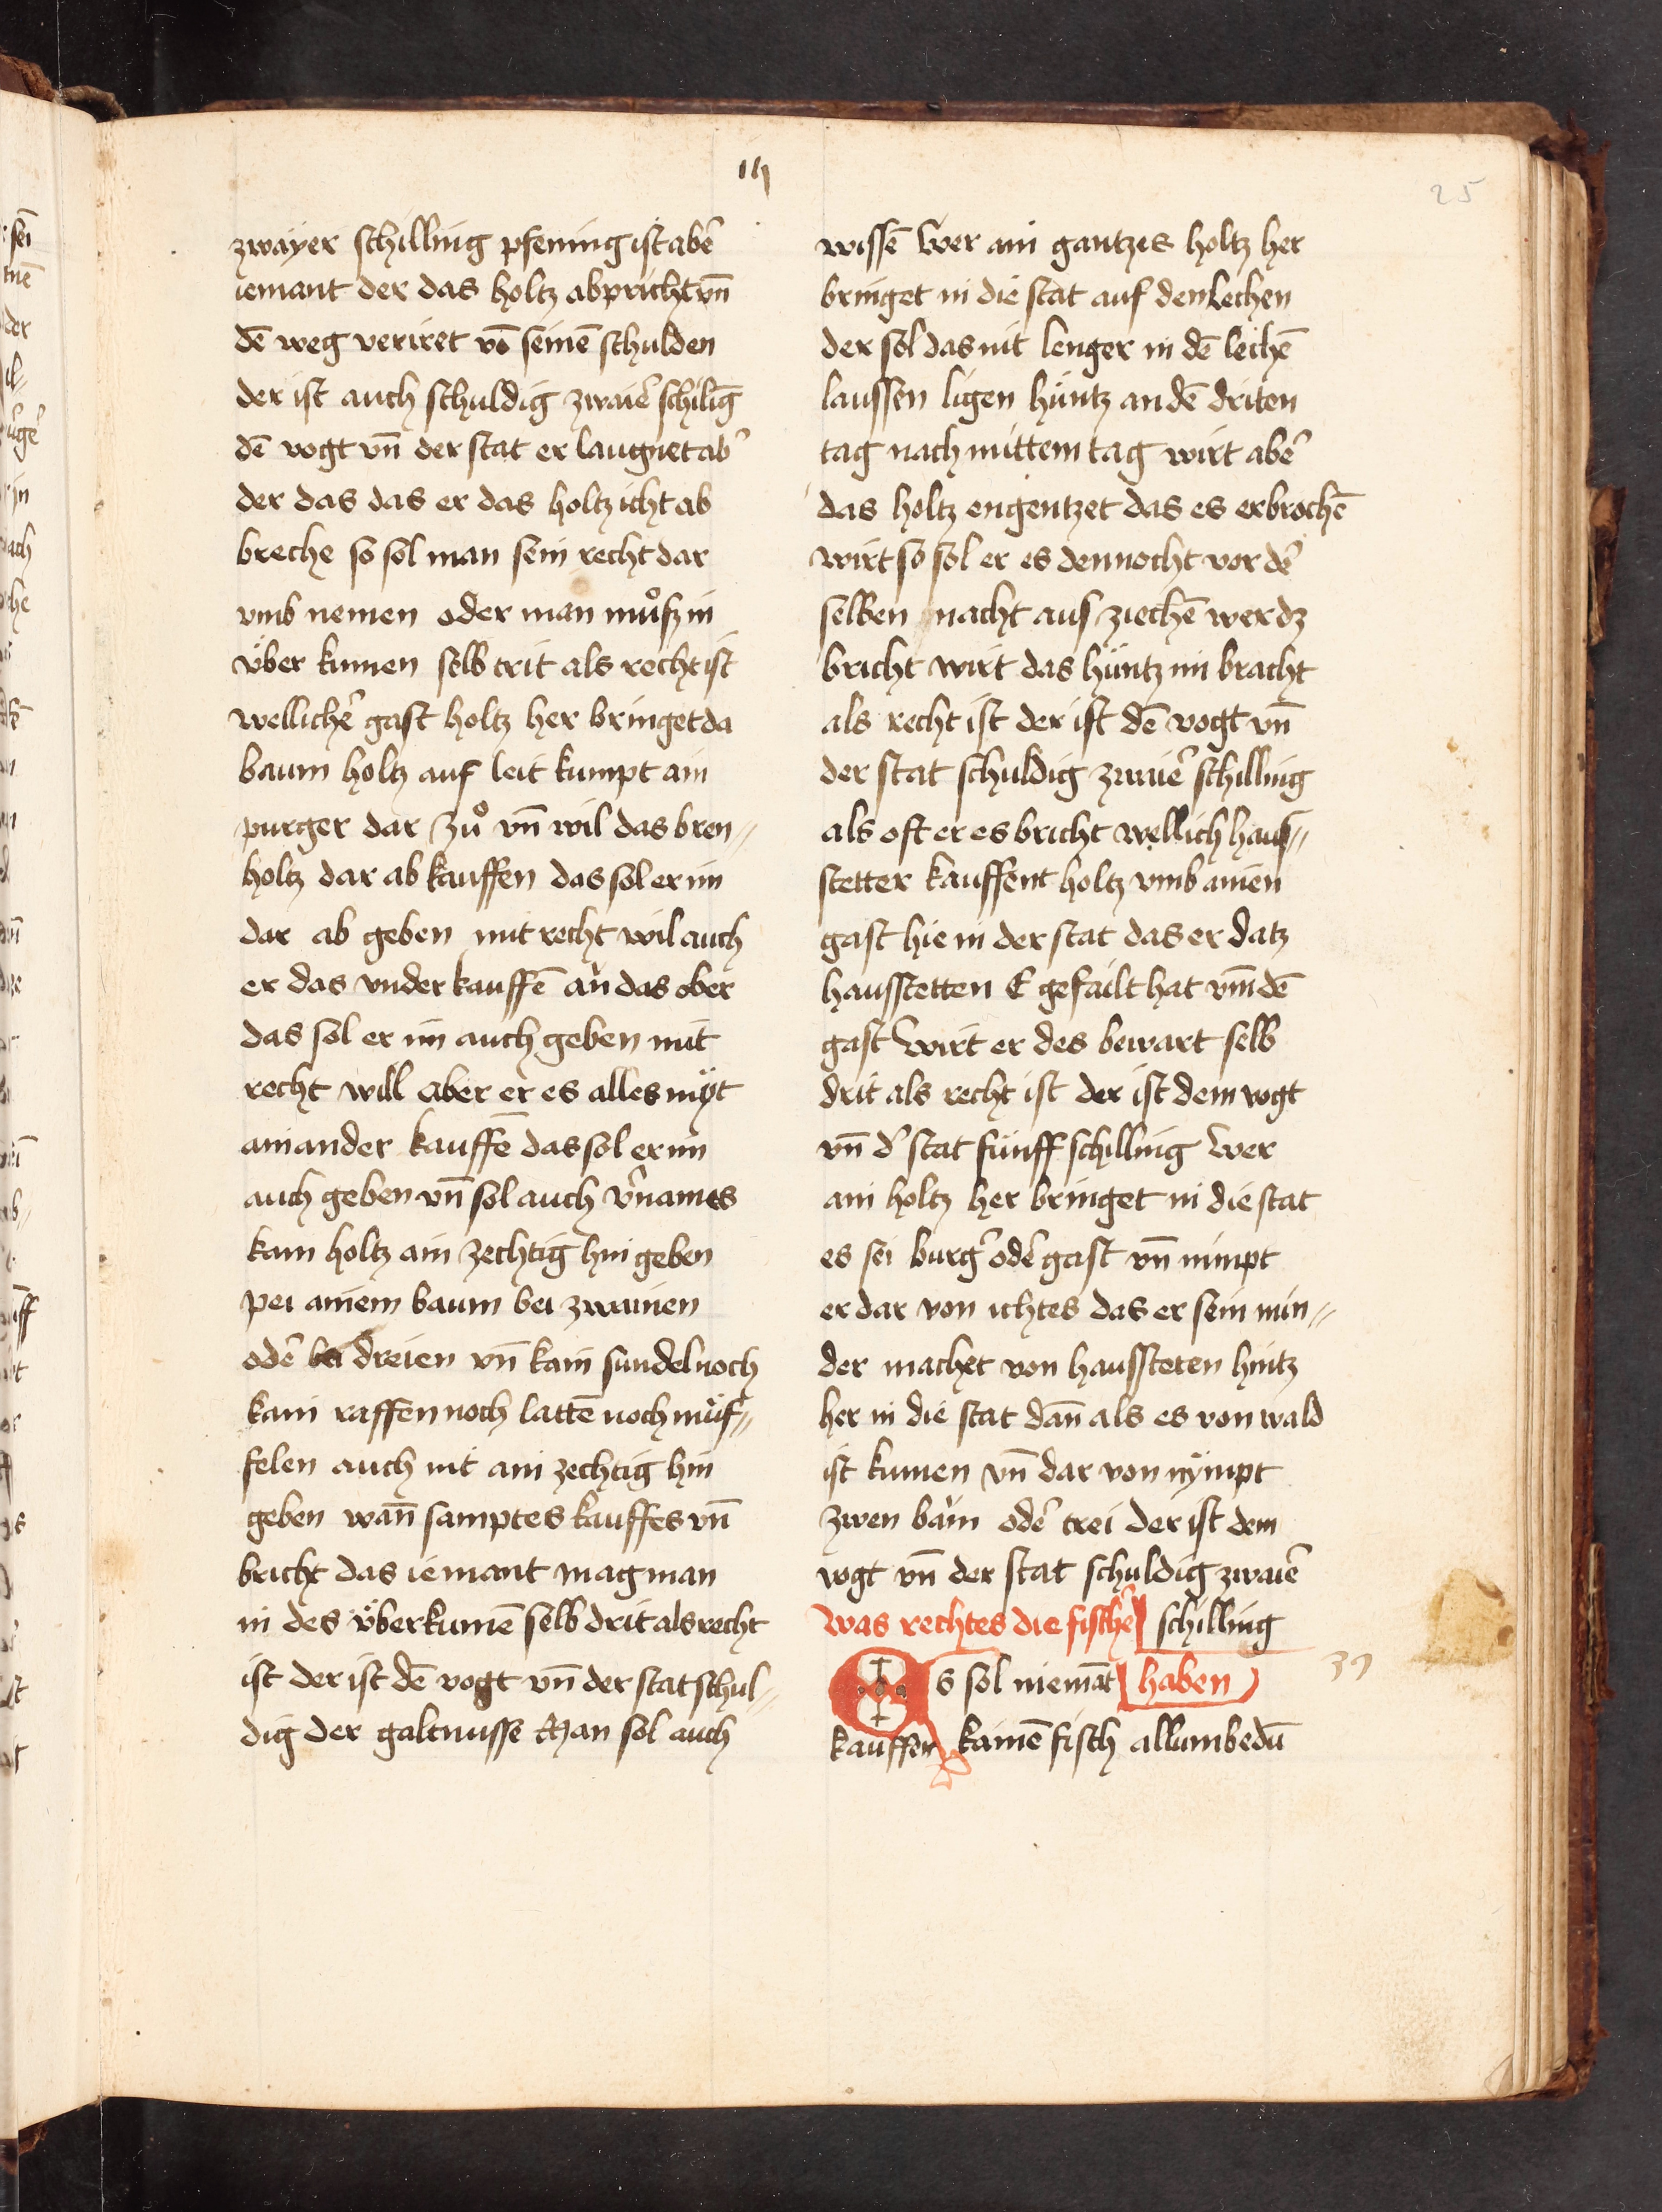 iij
25
zwayer schilling pfening ist abe᷑
iemant der das holtz abpricht vn̄
dē weg veriret vō seinē schulden
der ist auch schuldig zwaie᷑ schilīg
dē vogt vn̄ der stat er laugnet ab᷑
der das das er das holtz icht ab
breche so sol man sein recht dar
vmb nemen oder man muͦsz in
über kumen selb trit als recht ist
welliche᷑ gast holtz her bringet da
baum holtz auf leit kumpt ain
purger dar zuͦ vn̄ wil das bren〃
holtz dar ab kauffen das sol er im
dar ab geben mit recht wil auch
er das vnder kauffē an das ober
das sol er im auch geben mit
recht will aber er es alles myt
ainander kauffē das sol er im
auch geben vn̄ sol auch v᷑names
kain holtz ain zechtig hin geben
pei ainem baum bei zwainen
ode᷑ bei dreien vn̄ kain sundel noch
kain raffen noch lattē noch müs〃
felen auch nit ain zechtig hin
geben wan̄ samptes kauffes vn̄
bricht das iemant mag man
in des überkumē selb drit als recht
ist der ist dē vogt vn̄ der stat schul〃
dig der galtnusse Man sol auch
wissē Wer ain gantzes holtz her
bringet in die stat auf den lechen
der sol das nit lenger in dē lechē
laussen ligen hüntz an dē driten
tag nach mittem tag wirt abe᷑
das holtz engentzet das es erbrochē
wirt so sol er es dennocht vor de᷑
selben nacht aus ziechē wer dz
bricht wirt das hüntz im bracht
als recht ist der ist dē vogt vn̄
der stat schuldig zwaie᷑ schilling
als oft er es bricht wellich haus〃
stetter kauffent holtz vmb ainen
gast hie in der stat das er datz
hausstetten E gefailt hat vm̄ dē
gast Wirt er des bewart selb
drit als recht ist der ist dem vogt
vn̄ d᷑ stat fünff schilling Wer
ain holtz her bringet in die stat
es sei burg᷑ ode᷑ gast vn̄ nimpt
er dar von ichtes das er sein min〃
der machet von haussteten hintz
her in die stat dan̄ als es von wald
ist kumen vn̄ dar von nympt
zwen bäm ode᷑ trei der ist dem
vogt vn̄ der stat schuldig zwaie᷑
Was rechtes die fische᷑ schilling
Es sol niemāt haben
39
kauffen kainē fisch allumbedū